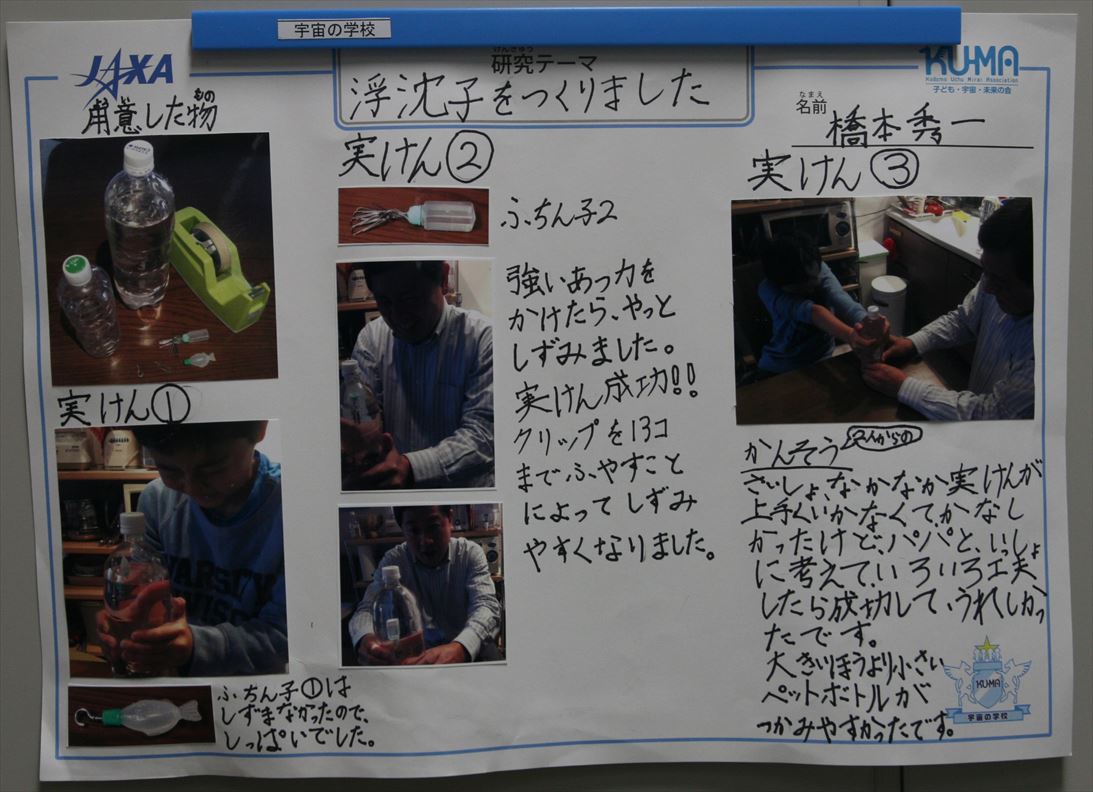 宇宙の学校
JAXA
けんきゅう
研究テーマ
浮沈子をつくりました
KU-MA
Kodomo Uchu Mirai Association
子ども・宇宙・未来の会
なまえ
名前
橋本秀一
もの
用意した物
実けん①
ふちん子①は
しずまなかったので、
しっぱいでした。
実けん②
ふちん子2
強いあっ力を
かけたら、やっと
しずみました。
実けん成功!!
クリップを13コ
までふやすこと
によってしずみ
やすくなりました。
実けん③
かんそう
さいしょ、なかなか実けんが
上手くいかなくて、かなし
かったけど、パパと、いっしょ
に考えて、いろいろ工夫
したら成功して、うれしかっ
たです。
大きいほうより小さい
ペットボトルが
つかみやすかったです。
KUMA
宇宙の学校